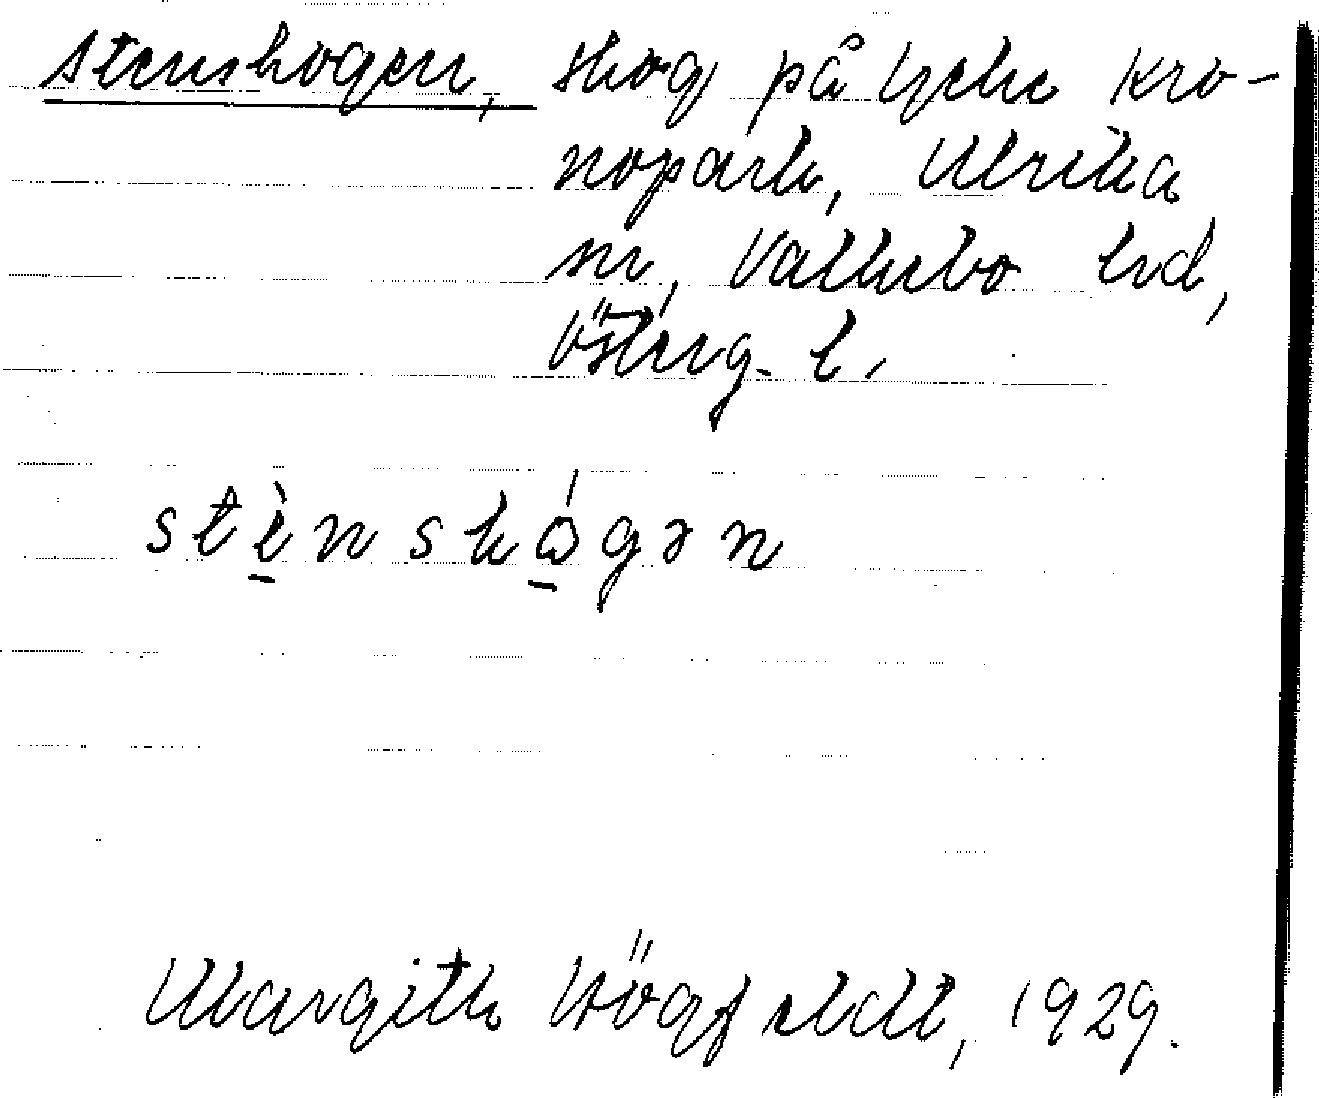 Stenskogen, skog på Lycke Kro-
nopark, Ulrika
sn, Valkebo hd,
Österg. l.
stènskógən
Margith Högfeldt, 1929.